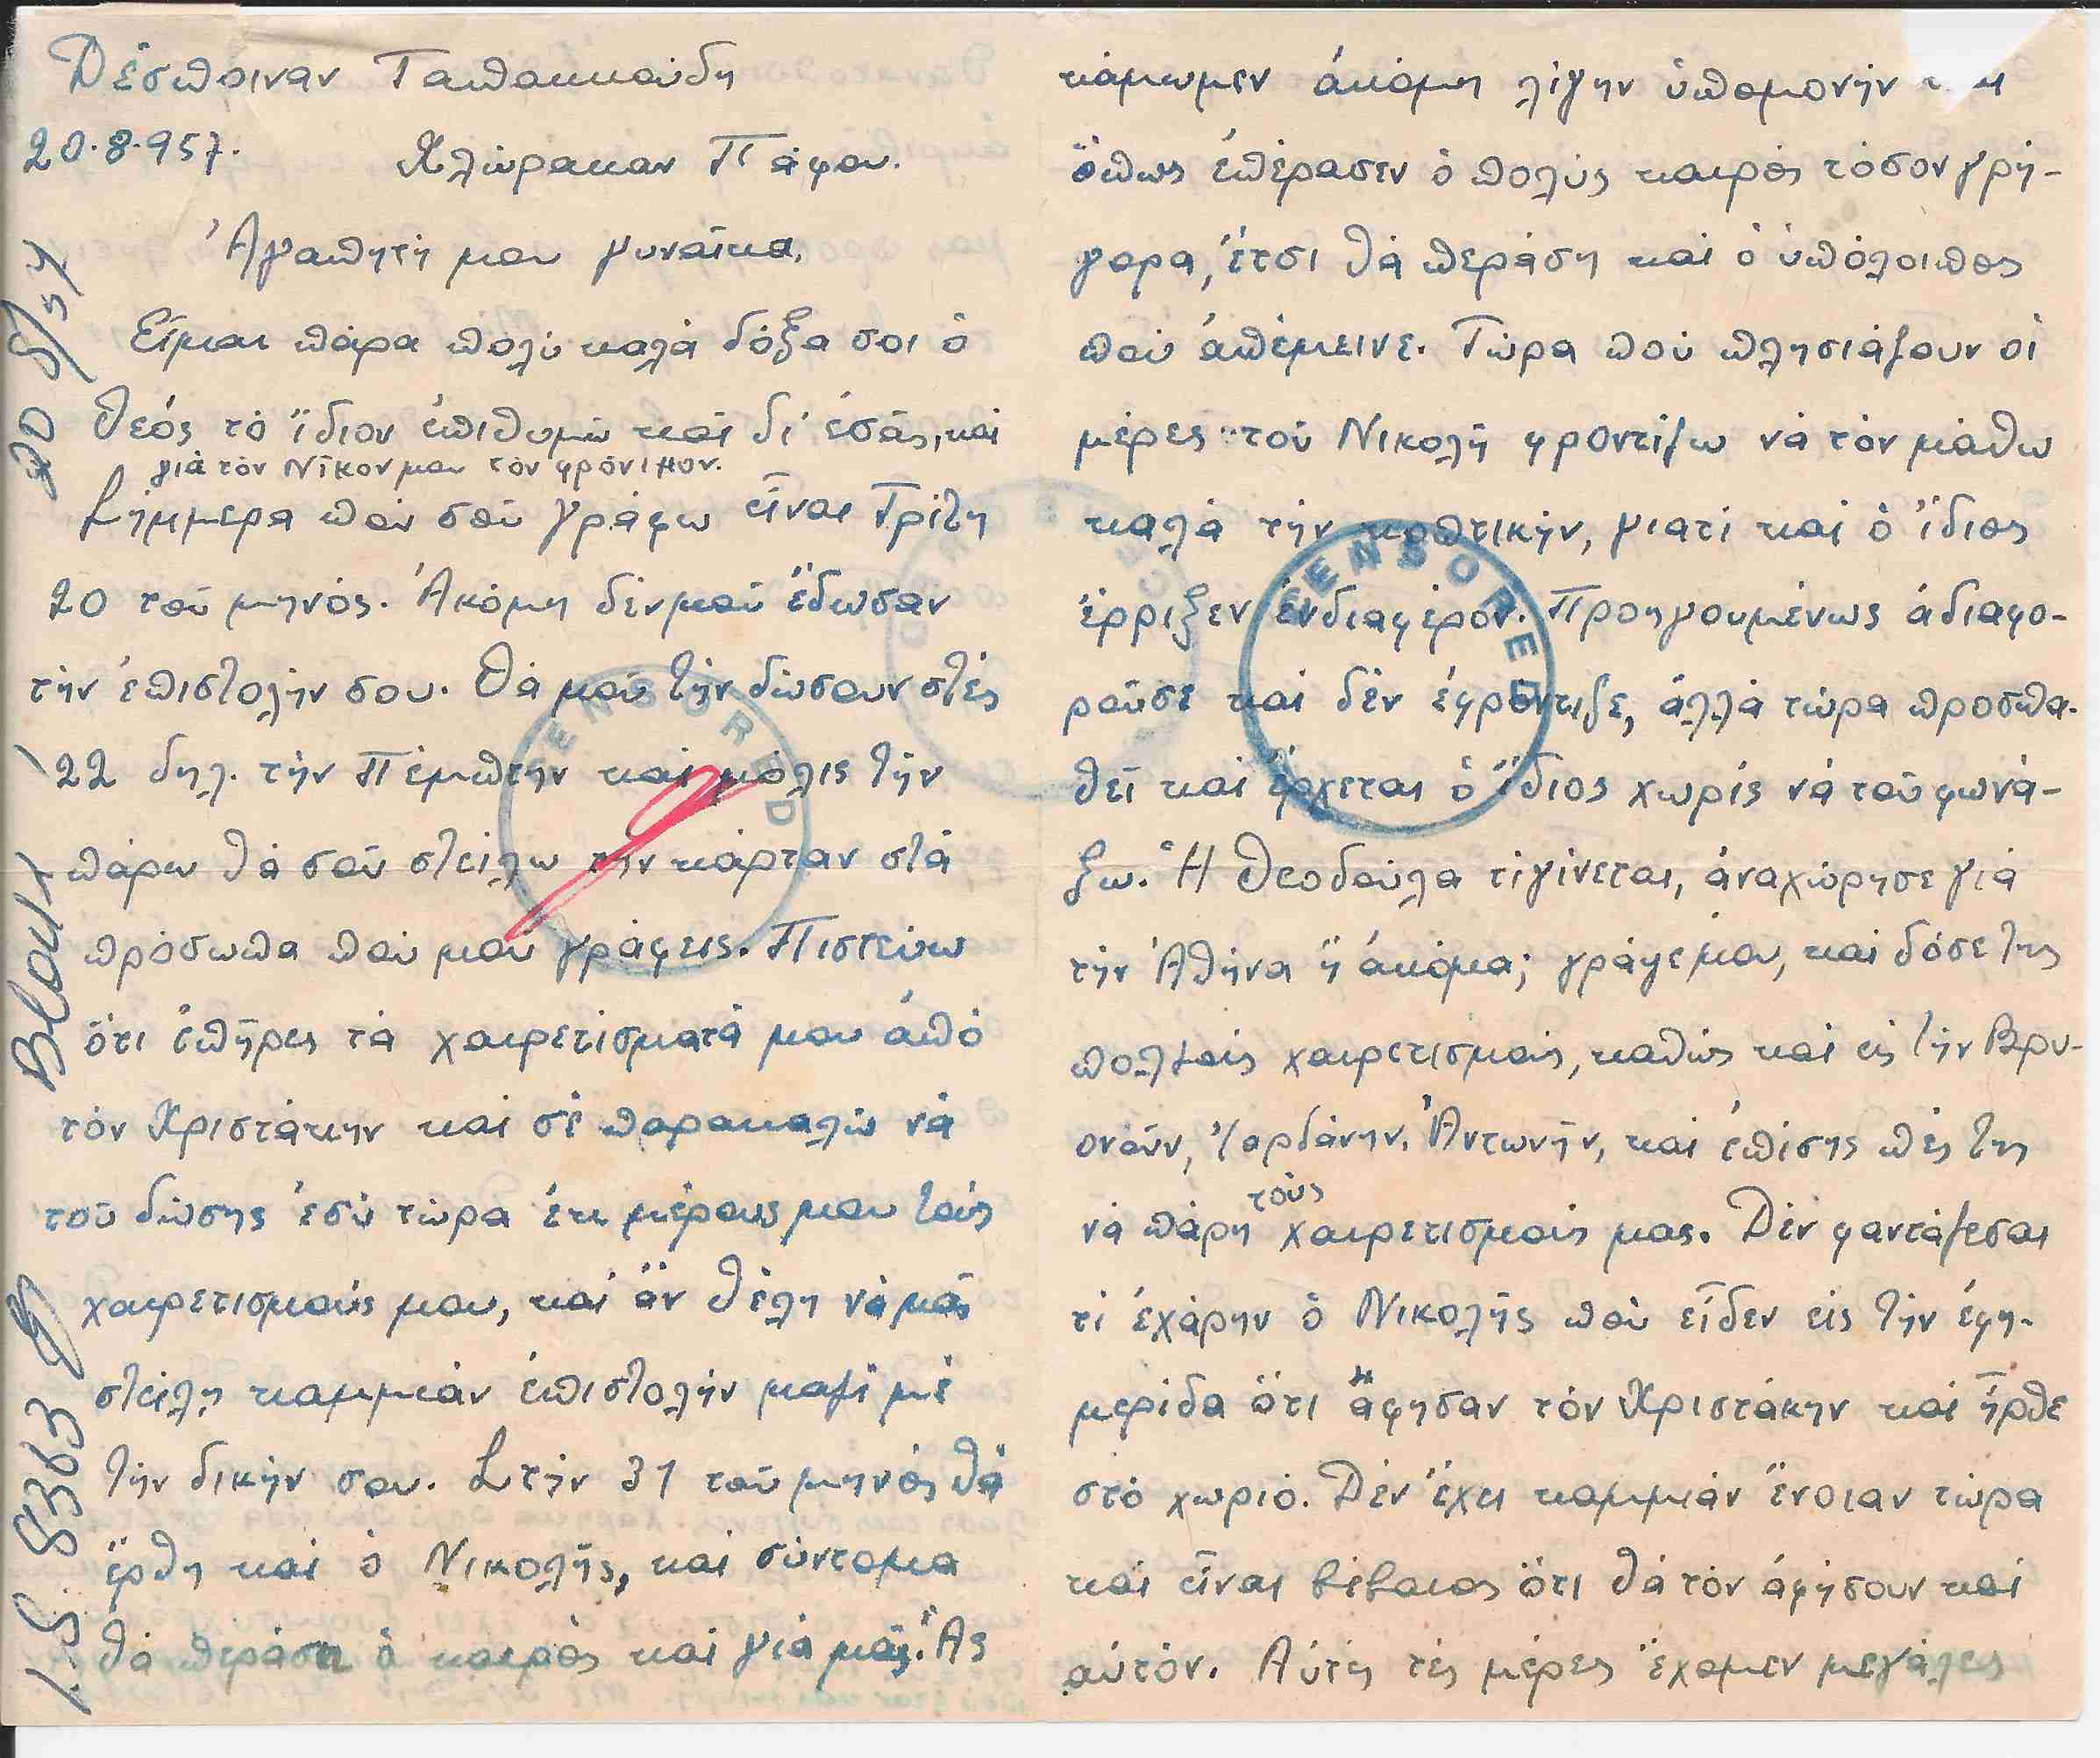 Δέσποιναν Ταπακκούδη
20.8.957.
Χλώρακαν Πάφου.
Ἀγαπητή μου γυναῖκα,
Εἶμαι πάρα πολύ καλά δόξα σοι ὁ
Θεός τό ἴδιον ἐπιθυμῶ καί δι' ἐσᾶς, καί
γιά τόν Νῖκον μου τόν φρόνιμον.
Σήμμερα πού σοῦ γράφω εἶναι Τρίτη
20 τοῦ μηνός. Ἀκόμη δέν μοῦ ἔδωσαν
τήν ἐπιστολήν σου. Θά μοῦ τήν δώσουν στές
22 δηλ. τήν Πέμπτην καί μόλις τήν
πάρω θά σοῦ στείλω τήν κάρταν στά
πρόσωπα πού μοῦ γράφεις. Πιστεύω
ὅτι ἐπῆρες τά χαιρετίσματά μου ἀπό
τόν Χριστάκην καί σέ παρακαλῶ νά
τοῦ δώσης ἐσύ τώρα ἐκ μέρους μου τούς
χαιρετισμούς μου, καί ἄν θέλη νά μᾶς
στείλη καμμιάν ἐπιστολήν μαζί μέ
τήν δικήν σου. Στήν 31 τοῦ μηνός θά
ἔρθη καί ὁ Νικολῆς, καί σύντομα
θά περάση ὁ καιρός καί γιά μᾶς. Ἄς
κάμωμεν ἀκόμη λίγην ὑπομονήν
ὅπως ἐπέρασεν ὁ πολύς καιρός τόσον γρή-
γορα, ἔτσι θά περάση καί ὁ ὑπόλοιπος
πού ἀπέμεινε. Τώρα πού πλησιάζουν οἱ
μέρες τοῦ Νικολῆ φροντίζω νά τόν μάθω
καλά τήν κοπτικήν, γιατί καί ὁ ἴδιος
ἔρριξεν ἐνδιαφέρον. Προηγουμένως ἀδιαφο-
ροῦσε καί δέν ἐφρόντιζε, ἀλλά τώρα προσπα-
θεῖ καί ἔρχεται ὁ ἴδιος χωρίς νά τοῦ φωνά-
ξω. Ἡ Θεοδούλα τί γίνεται, ἀναχώρησε γιά
τήν Ἀθήνα ἤ ἀκόμα; γράψε μου, καί δόσε της
πολλούς χαιρετισμούς, καθώς καί εἰς τήν Βρυ-
ονοῦν, Ἰορδάνην, Ἀντωνῆν, καί ἐπίσης πές της
νά πάρη τούς χαιρετισμούς μας. Δέν φαντάζεσαι
τί ἐχάρην ὁ Νικολῆς πού εἶδεν εἰς τήν ἐφη-
μερίδα ὅτι ἄφησαν τόν Χριστάκην καί ἦρθε
στό χωριό. Δέν ἔχει καμμιάν ἔνοιαν τώρα
καί εἶναι βέβαιος ὅτι θά τόν ἀφήσουν καί
αὐτόν. Αὐτές τές μέρες ἔχομεν μεγάλες
CENSORED
CENSORED